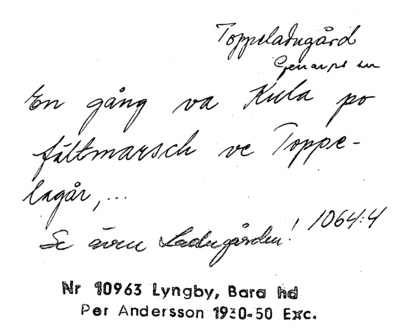 Toppeladugård
Genarps sn
En gång va Kula po
fältmarsch ve Toppe-
lagår,...
Se även Ladugården! 1064:4
Nr 10963 Lyngby, Bara hd
Per Andersson 1930-50 Exc.